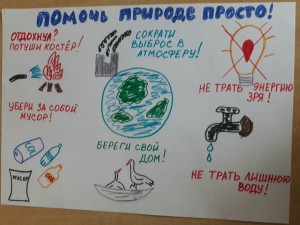 ПОМОЧЬ ПРИРОДЕ ПРОСТО!
ОТДОХНУЛ?
ПОТУШИ КОСТЁР!
СОКРАТИ
ВЫБРОС В
АТМОСФЕРУ!
НЕ ТРАТЬ ЭНЕРГИЮ
ЗРЯ!
УБЕРИ ЗА СОБОЙ
МУСОР!
БЕРЕГИ СВОЙ
ДОМ!
МУСОР
НЕ ТРАТЬ ЛИШНЮЮ
ВОДУ!